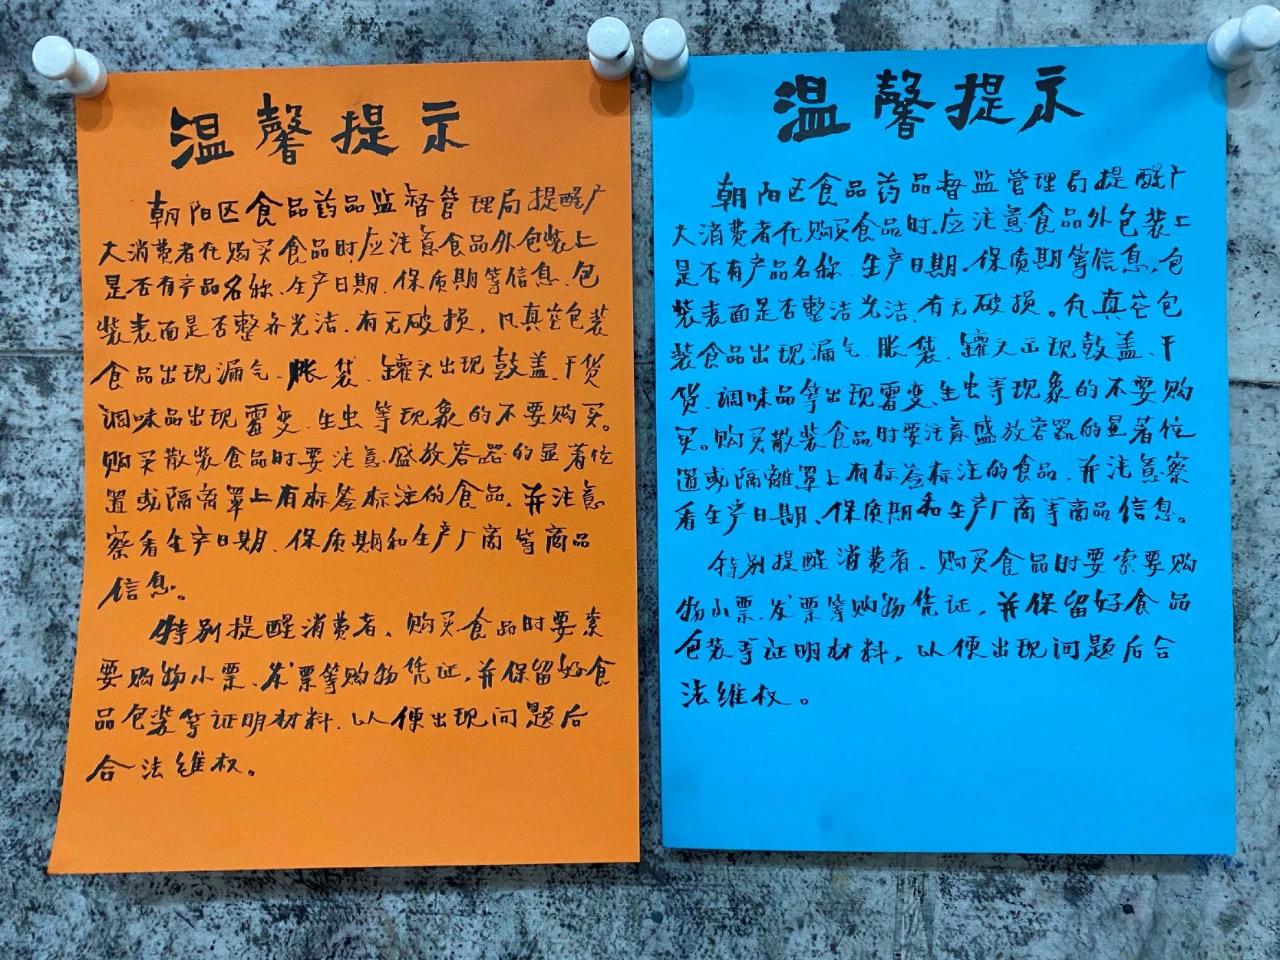 温馨提示
朝阳区食品药品监督管理局提醒广
大消费者在购买食品时应注意食品外包装上
是否有产品名称、生产日期、保质期等信息、包
装表面是否整齐光洁、有无破损。凡真空包装
食品出现漏气、胀袋、罐头出现鼓盖、干货
调味品出现霉变、生虫等现象的不要购买。
购买散装食品时要注意盛放容器的显著位
置或隔离罩上有标签标注的食品，并注意
察看生产日期、保质期和生产厂商等商品
信息。
特别提醒消费者，购买食品时要索
要购物小票、发票等购物凭证，并保留好食
品包装等证明材料，以便出现问题后
合法维权。
温馨提示
朝阳区食品药品督监管理局提醒广
大消费者在购买食品时，应注意食品外包装上
是否有产品名称、生产日期、保质期等信息，包
装表面是否整洁光洁、有无破损。凡真空包
装食品出现漏气、胀袋、罐头出现鼓盖、干
货、调味品等出现霉变、生虫等现象的不要购
买。购买散装食品时要注意盛放容器的显著位
置或隔离罩上有标签标注的食品，并注意察
看生产日期、保质期和生产厂商等商品信息。
特别提醒消费者，购买食品时要索要购
物小票、发票等购物凭证，并保留好食品
包装等证明材料，以便出现问题后合
法维权。